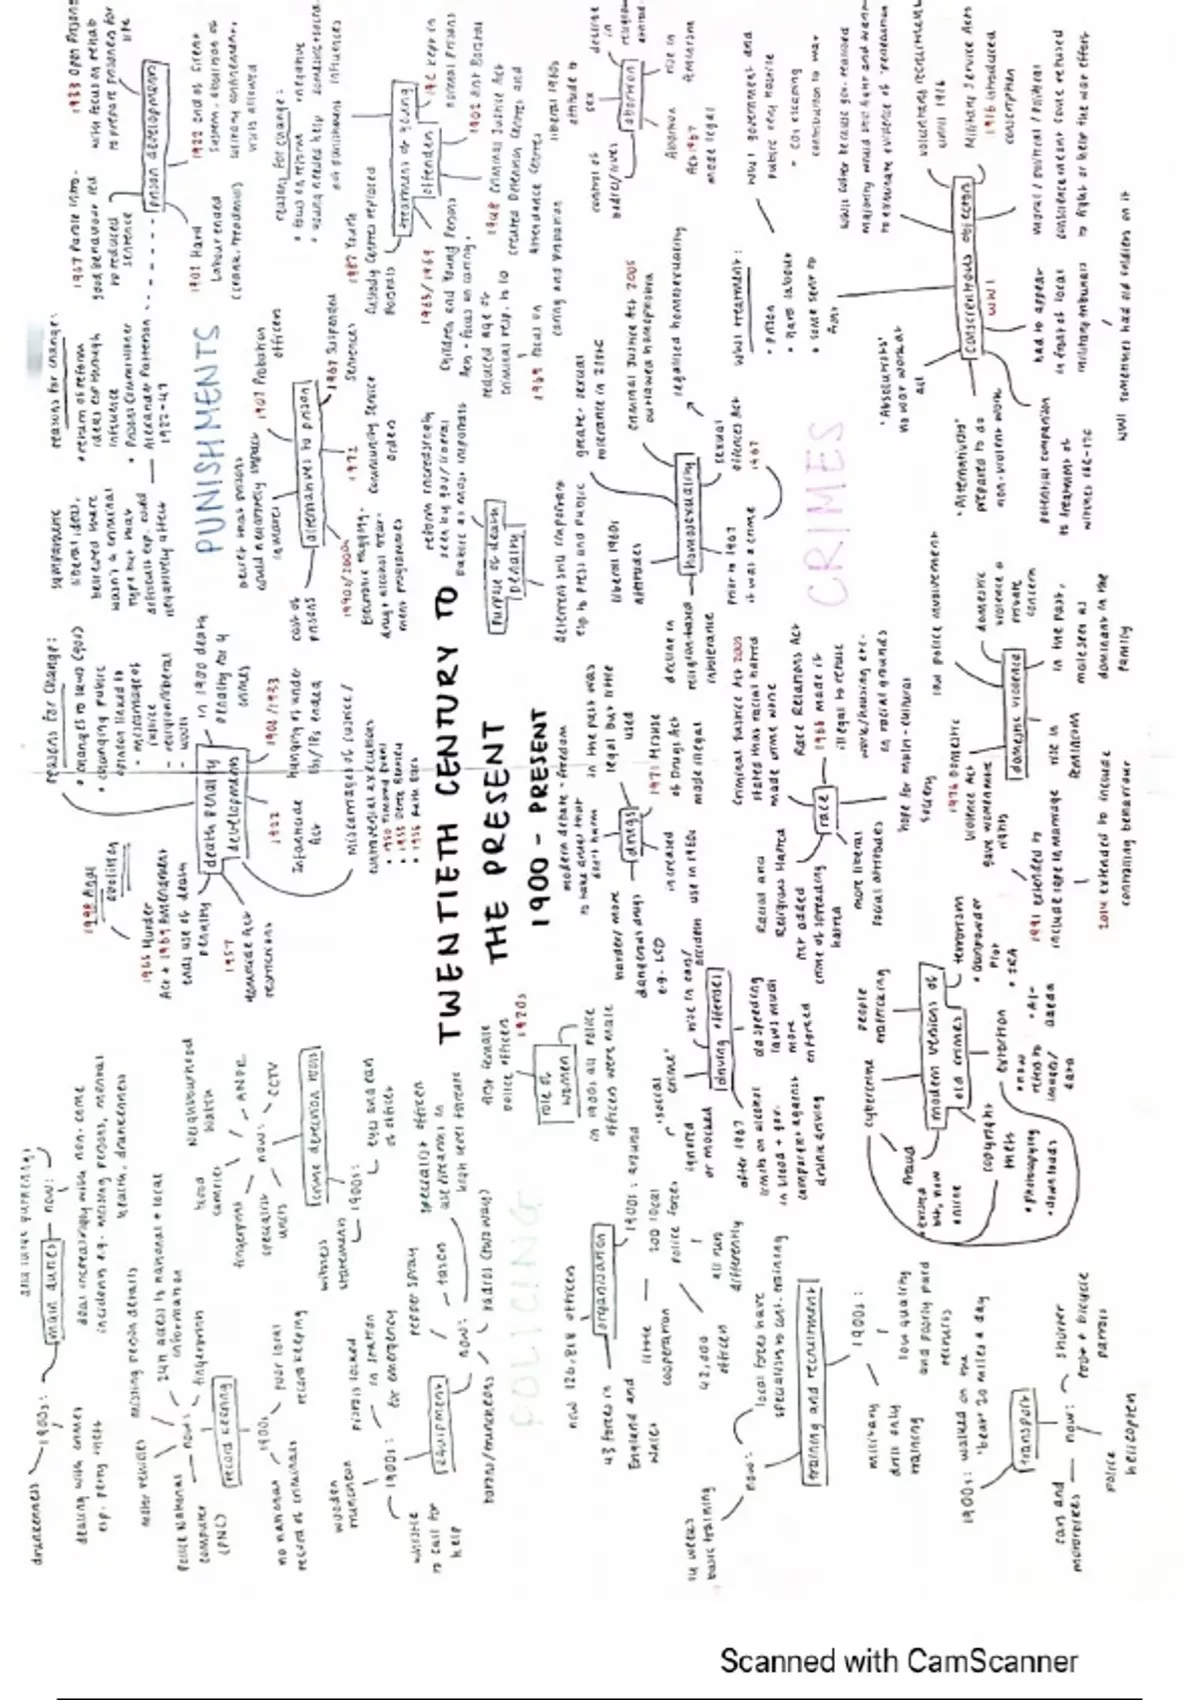 TWENTIETH CENTURY TO
THE PRESENT
1900 - PRESENT
POLICING
drunkenness
1900s:
main duties
now:
dealing with crimes
esp. petty theft
deal increasingly with non-crime
incidents e.g. missing persons, mental
health, drunkenness
record keeping
now:
stolen vehicles
missing person details
24h access to national + local
information
fingerprint
Police National
Computer
(PNC)
1900s
poor local
record keeping
no national
record of criminals
equipment
1900s:
wooden
truncheon
pistols locked
in station
for emergency
whistle
to call for
help
now:
pepper spray
taser
specialist officers
use firearms in
batons/truncheons
radios (two way)
crime detection tools
1900s:
witness
statements
eyes and ears
of officer
now:
fingerprint
blood
samples
Neighbourhood
Watch
ANPR
CCTV
specialist
units
role of
women
first female
police officers
1920s
in 1900s all police
officers were male
organisation
now 126,818 officers
43 forces in
England and
Wales
1900s: around
200 local
police forces
all run
differently
little
cooperation
42,000
officers
training and recruitment
now:
14 weeks
basic training
local forces have
1900s:
military
drill only
training
low quality
and poorly paid
recruits
transport
1900s: walked on the
'beat' 20 miles a day
now:
shorter
foot + bicycle
patrols
cars and
motorbikes
police
helicopters
PUNISHMENTS
death penalty
developments
reasons for change:
• changes to laws (gov)
• changing public
opinion linked to
- miscarriages of
justice
- religion/liberal
in 1900 death
penalty for 4
crimes
1908/1933
hanging of under
16s/18s ended
1922
Infanticide
Act
miscarriages of justice /
controversial executions
• 1950 Timothy Evans
• 1953 Derek Bentley
• 1955 Ruth Ellis
1957
Homicide Act
restrictions
1965 Murder
Act + 1969 Amendment
ends use of death
penalty
1998 final
abolition
prison development
reasons for change:
• return of reform
ideas esp through
influence
• Prison Commissioner
Alexander Patterson
1922-47
1967 Parole intro-
good behaviour led
to reduced
sentence
1933 Open Prisons
with focus on rehab
to prepare prisoners for
life
1902 Hard
Labour ended
(crank, treadmill)
solitary confinement,
visits allowed
alternatives to prison
belief that prisons
could negatively impact
inmates
1907 Probation
officers
1967 Suspended
Sentences
1972
Community Service
Orders
1990s/2000s
Electronic tagging,
drug + alcohol treat-
ment programmes
cost of
prisons
treatment of young
offenders
reasons for change:
• focus on reform
1902 first Borstal
1948 Criminal Justice Act
created Detention Centres and
Attendance Centres
1963/1969
Children and Young Persons
Acts - focus on caring.
reduced age of
criminal resp. is 10
1969 focus on
caring and probation
Custody Centres replaced
Borstals
purpose of death
penalty
reform increasingly
seen by gov/liberal
public as most important
deterrent still important
esp to press and public
CRIMES
abortion
liberal 1960s
attitude to
sex
Abortion
Act 1967
made legal
homosexuality
liberal 1960s
attitudes
greater sexual
tolerance in 21stC
Criminal Justice Act 2005
outlawed homophobia
legalised homosexuality
Sexual
Offences Act
1967
prior to 1967
it was a crime
decline in
religion-based
intolerance
conscientious objectors
WW1
WW1 treatment:
• prison
• hard labour
• some sent to
front
WW1 government and
public very hostile
voluntary recruitment
until 1916
Military Service Acts
1916 introduced
conscription
moral / political / religious
conscience meant some refused
to fight or help the war effort
had to appear
in front of local
military tribunals
'Absolutists'
no war work at
all
'Alternativists'
prepared to do
non-violent work
potential comparison
to treatment of
witches 16C-17C
WW1 tribunals had old soldiers on it
drugs
modern debate - freedom
to take drugs that
don't harm
in the past was
legal but little
used
1971 Misuse
of Drugs Act
made illegal
increased
use in 1960s
harder/more
dangerous drugs
e.g. LSD
driving offences
rise in cars/
accidents
'social
crime'
ignored
or mocked
so speeding
laws much
more
enforced
after 1967
limits on alcohol
in blood + gov.
campaigns against
drunk driving
race
Criminal Justice Act 2005
stated that racial hatred
made crime worse
Race Relations Act
1968 made it
illegal to refuse
work/housing etc.
on racial grounds
hope for multi-cultural
society
more liberal
social attitudes
Racial and
Religious Hatred
Act added
crime of spreading
hatred
domestic violence
low police involvement
domestic
violence a
private
concern
in the past,
male seen as
dominant in the
family
rise in
feminism
1976 Domestic
Violence Act
gave women more
rights
1991 extended to
include rape in marriage
2014 extended to include
controlling behaviour
modern versions of
old crimes
people
trafficking
cybercrime
fraud
• existed
but, now
online
copyright
theft
• photocopying
• downloads
extortion
• now
relates to
images/
data
terrorism
• Gunpowder
Plot
• IRA
• Al-
Qaeda
Scanned with CamScanner